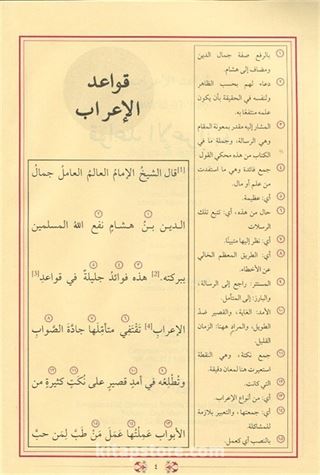 قواعد
الإعراب
[1]قال الشيخُ الإمامُ العالمُ العاملُ جمالُ
الدينِ بنُ هشامٍ نفع اللهُ المسلمين
ببركته. [2] هذه فوائدُ جليلةٌ في قواعدِ [3]
الإعرابِ [4] تَقْتَفي متأمِّلَها جادَّةَ الصَّوابِ
وتُطْلِعُه في أمدٍ قصيرٍ على نُكَتٍ كثيرةٍ من
الأبوابِ عَمِلْتُها عَمَلَ مَن طَبَّ لِمَن حَبَّ
بالرفع صفة جمال الدين
ومضاف إلى هشام.
دعاء لهم بحسب الظاهر
ولنفسه في الحقيقة بأن يكون
علمه منتفعًا به.
المشار إليه مقدر بمعونة المقام
وهي الرسالة، وجملة ما في
الكتاب من هذه محكي القول
جمع فائدة وهي ما استفدت
من علم أو مال.
أي: عظيمة.
حال من هذه، أي: تتبع تلك
الرسالات
أي: نظر إليها متبينًا.
أي: الطريق المعظم الخالي
عن الأخطاء.
المستتر: راجع إلى الرسالة،
والبارز: إلى المتأمل.
الأمد: الغاية، والقصير ضدّ
الطويل، والمراد ههنا: الزمان
القليل.
جمع نكتة، وهي النقطة
استعيرت هنا لمعان دقيقة.
التي كانت.
أي: من أنواع الإعراب.
أي: جمعتها، والتعبير بلازمة
للمشاكلة.
بالنصب أي كعمل.
٤
kitapstore.com